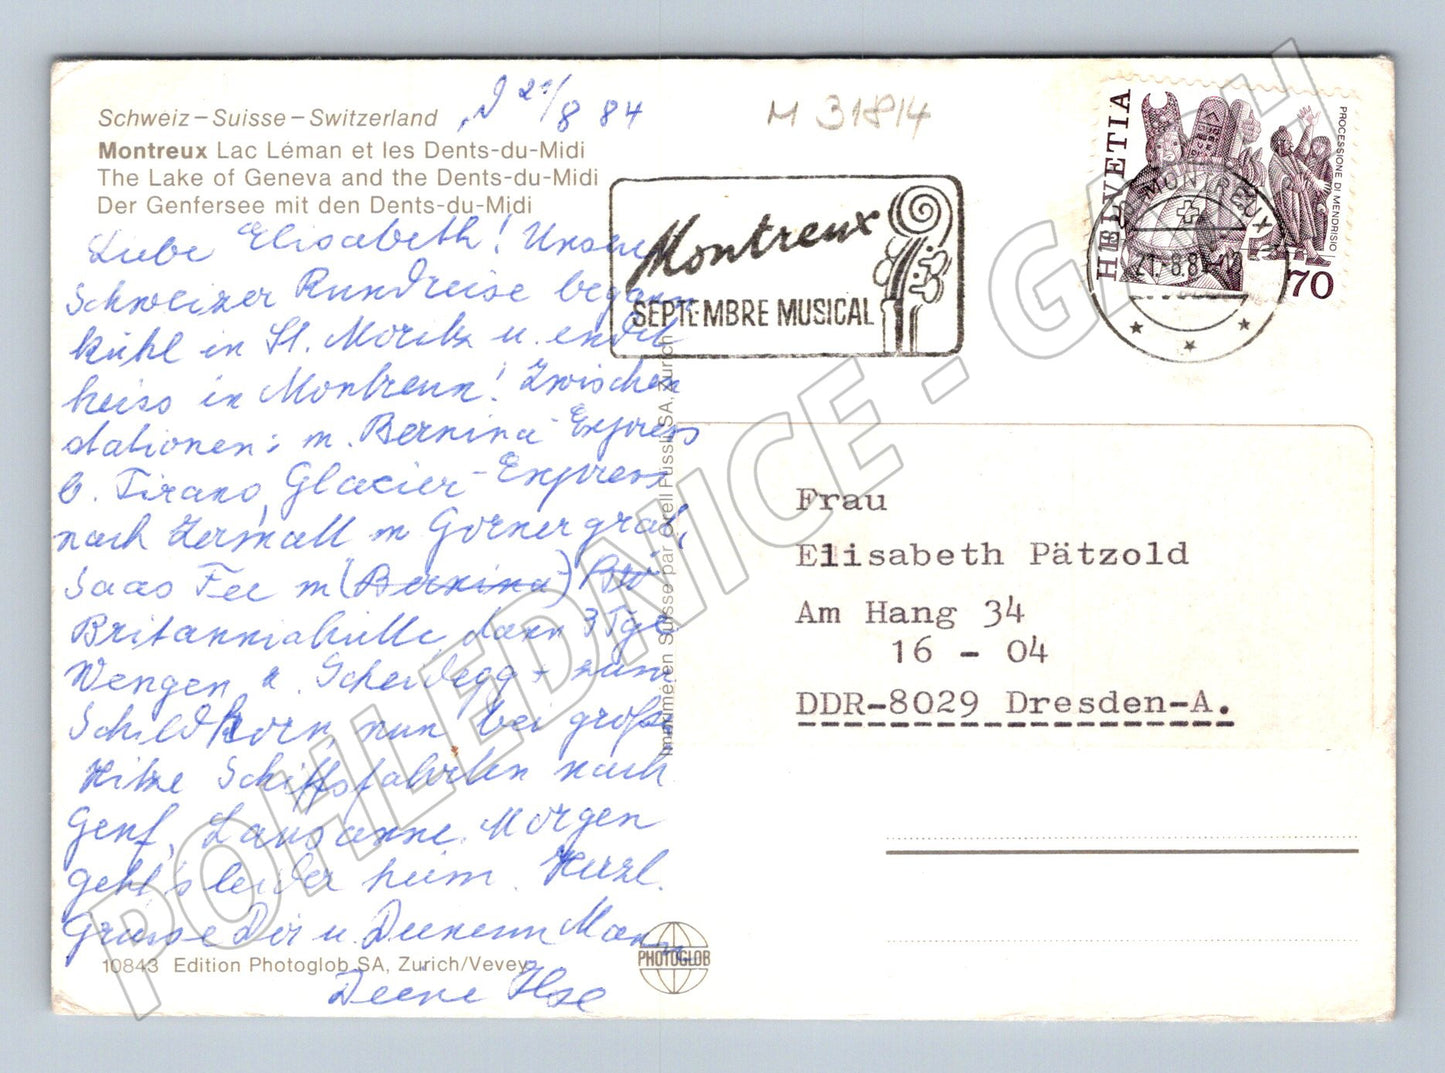 Schweiz – Suisse – Switzerland
Montreux Lac Léman et les Dents-du-Midi
The Lake of Geneva and the Dents-du-Midi
Der Genfersee mit den Dents-du-Midi
8 84
M 31814
Liebe Elisabeth! Unsere
Schweizer Rundreise begann
kühl in St. Moritz u. endet
heiss in Montreux! Zwischen
stationen: m. Bernina-Express
b. Tirano, Glacier-Express
nach Zermatt m Gornergrat,
Saas Fee m (Bernina)
Britanniahütte, dann 3 Tge
Wengen u. Scheidegg + zum
Schildhorn, nun bei großer
Hitze Schiffsfahrten nach
Genf, Lausanne. Morgen
geht's leider heim. Herzl.
Grüsse Dir u. Deinem Mann
Deine Ilse
10843 Edition Photoglob SA, Zurich/Vevey
Imprimé en Suisse par Orell Füssli SA, Zurich
PHOTOGLOB
Montreux
SEPTEMBRE MUSICAL
HELVETIA
PROCESSIONE DI MENDRISIO
70
MONTREUX
21.-8.84-12
Frau
Elisabeth Pätzold
Am Hang 34
16 - 04
DDR-8029 Dresden-A.
POHLEDNICE - GASH